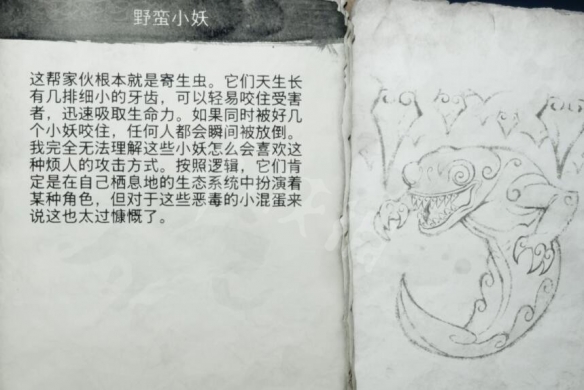 野蛮小妖
这帮家伙根本就是寄生虫。它们天生长
有几排细小的牙齿，可以轻易咬住受害
者，迅速吸取生命力。如果同时被好几
个小妖咬住，任何人都会瞬间被放倒。
我完全无法理解这些小妖怎么会喜欢这
种烦人的攻击方式。按照逻辑，它们肯
定是在自己栖息地的生态系统中扮演着
某种角色，但对于这些恶毒的小混蛋来
说这也太过慷慨了。